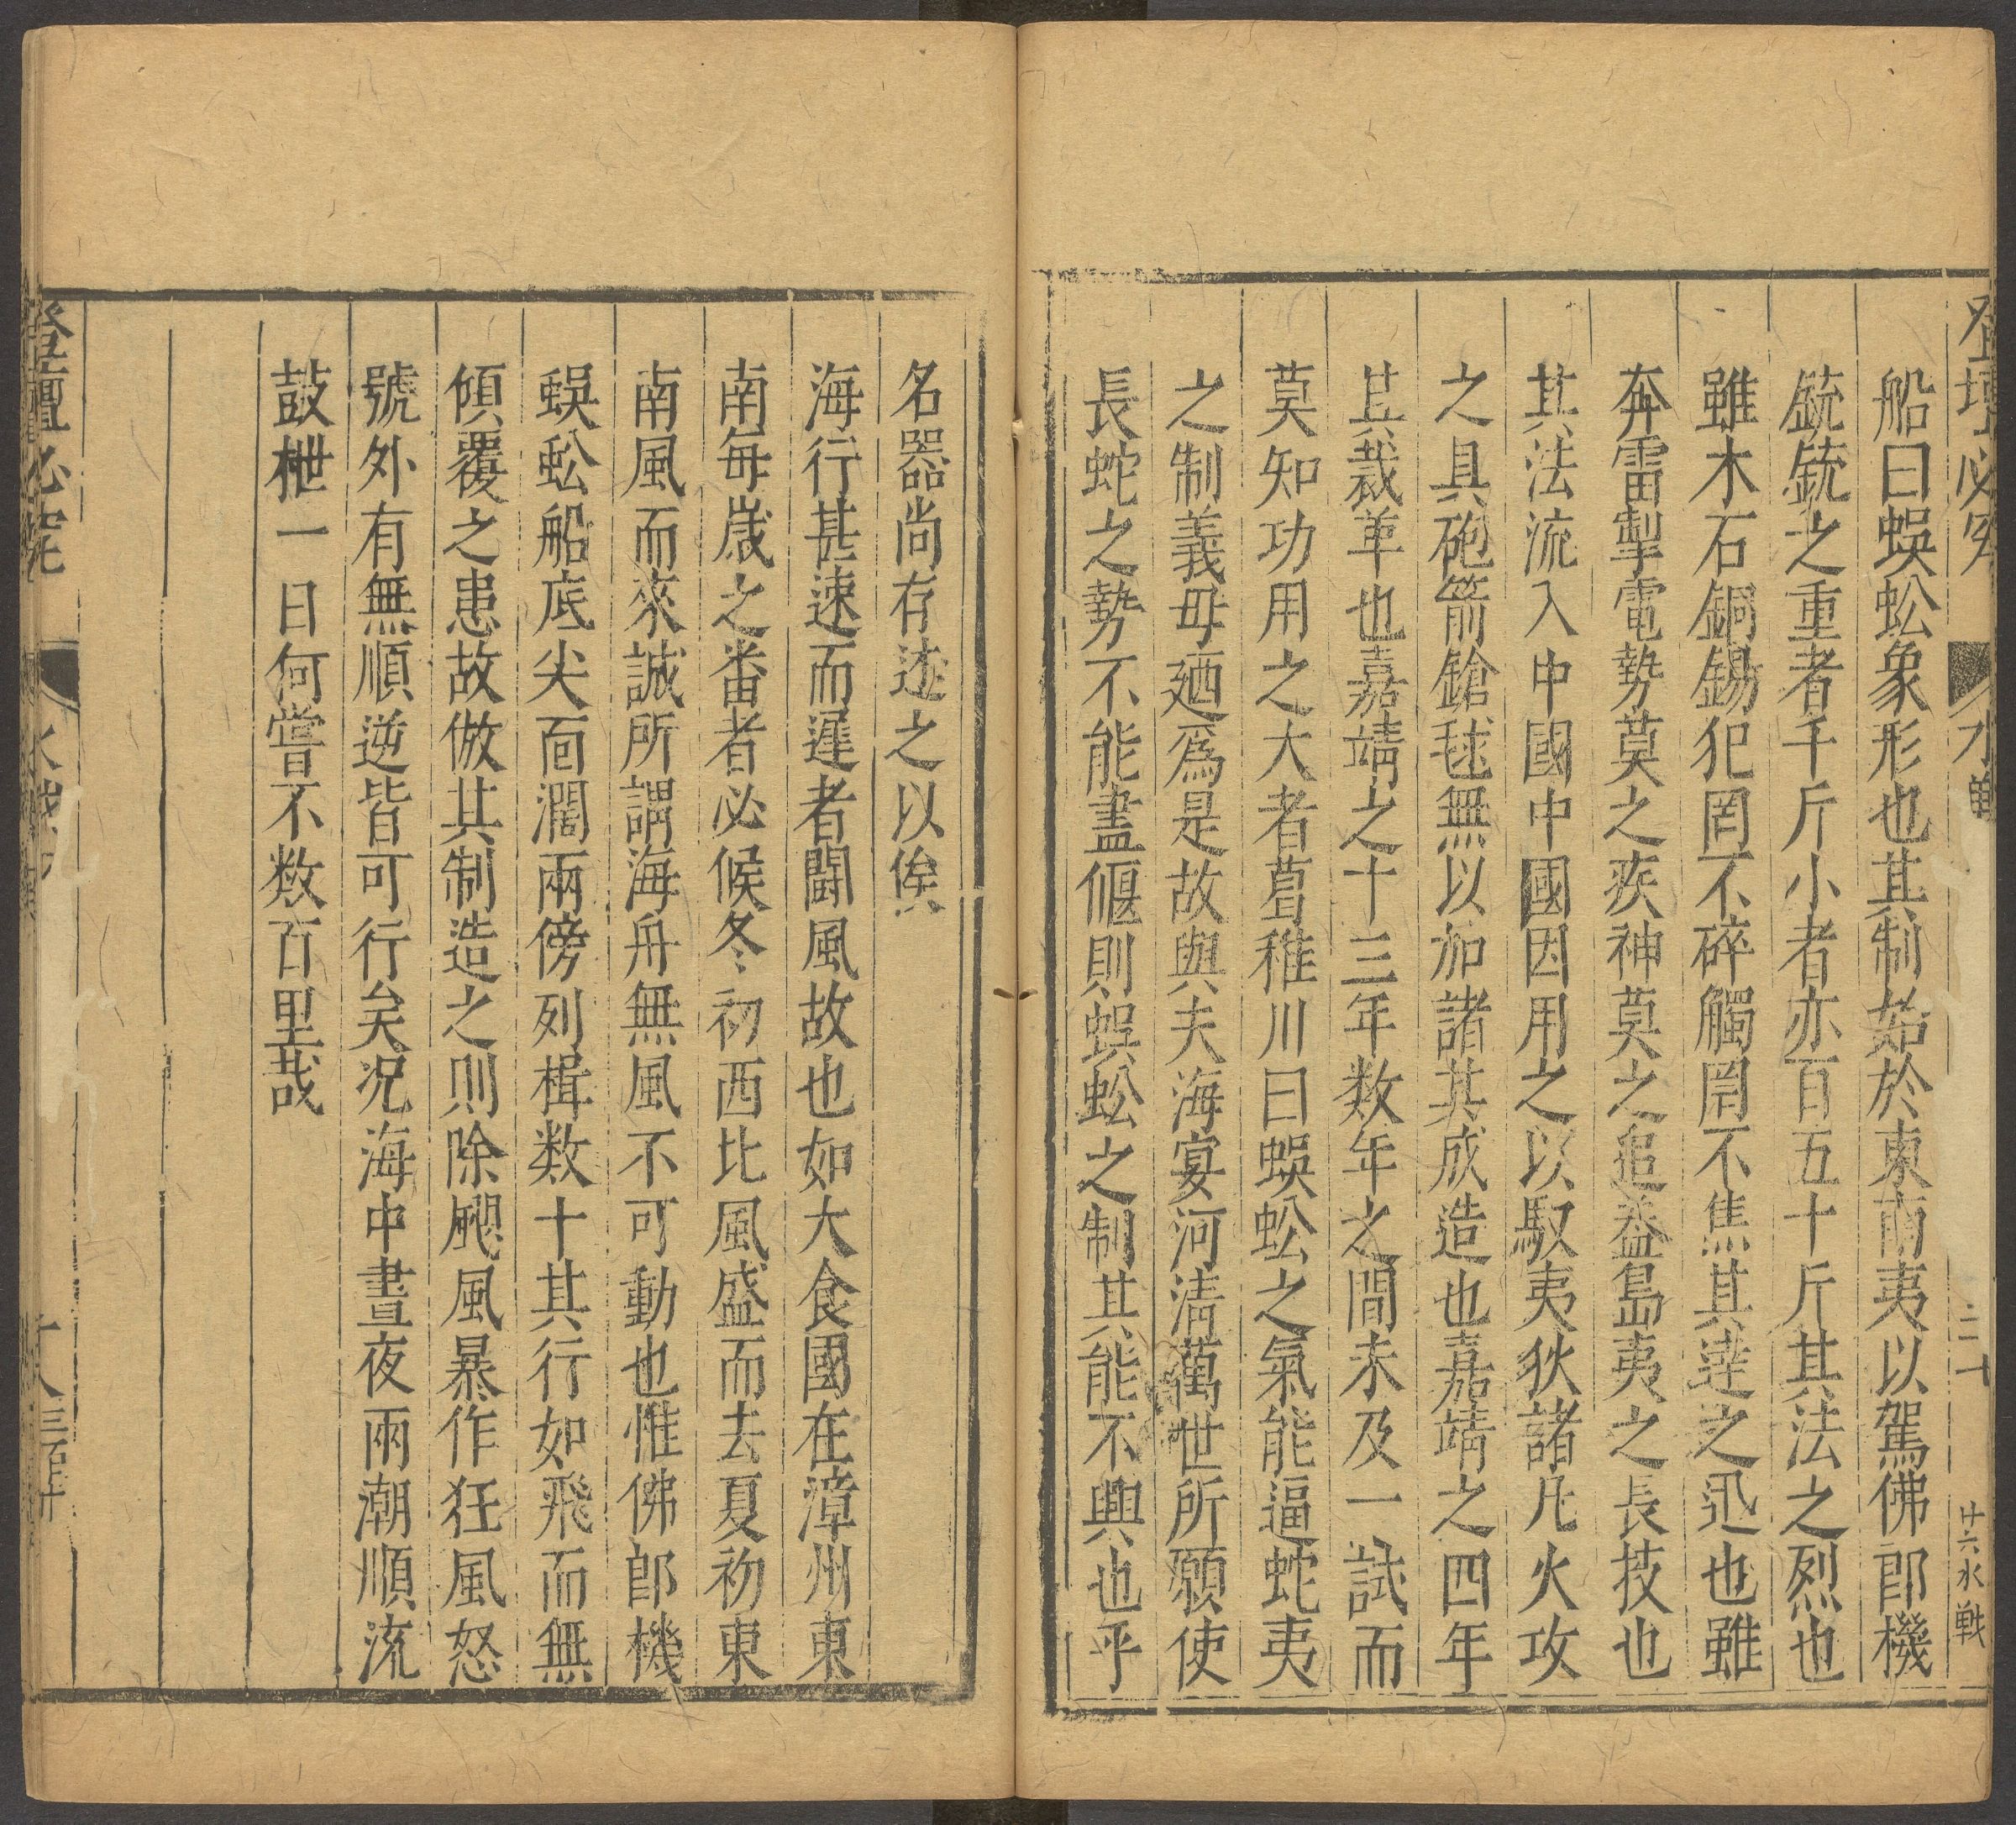 登壇必究 水戰 二十 廿六水戰
船曰蜈蚣象形也其制始於東南夷以駕佛郎機
銃銃之重者千斤小者亦百五十斤其法之烈也
雖木石銅錫犯罔不碎觸罔不焦其達之迅也雖
奔雷掣電勢莫之疾神莫之追盖島夷之長技也
其法流入中國中國因用之以馭夷狄諸凡火攻
之具砲箭鎗毬無以加諸其成造也嘉靖之四年
其裁革也嘉靖之十三年数年之間未及一試而
莫知功用之大者葛稚川曰蜈蚣之氣能逼蛇夷
之制義毋廼爲是故與夫海宴河清萬世所願使
長蛇之勢不能盡偃則蜈蚣之制其能不興也乎
名器尚存述之以俟
海行甚速而遲者鬬風故也如大食國在漳州東
南每歲之畨者必候冬初西北風盛而去夏初東
南風而來誠所謂海舟無風不可動也惟佛郎機
蜈蚣船底尖面濶兩傍列楫数十其行如飛而無
傾覆之患故倣其制造之則除颶風暴作狂風怒
號外有無順逆皆可行矣况海中晝夜兩潮順流
鼓枻一日何嘗不数百里哉
登壇必究 水戰